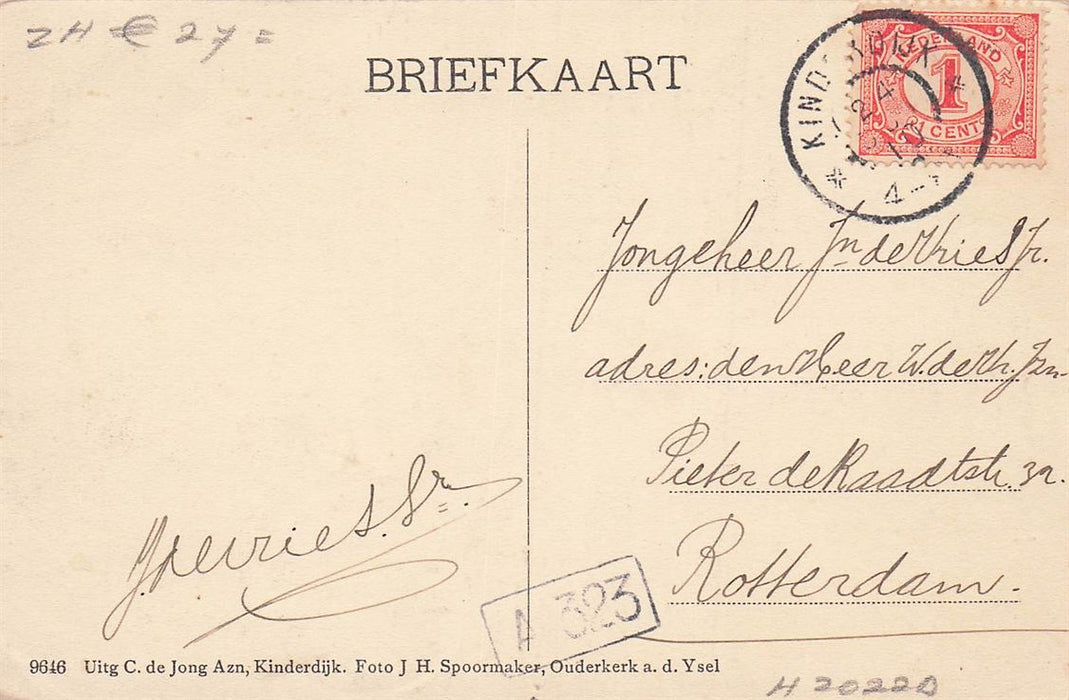 ZH € 27=
BRIEFKAART
NEDERLAND
1
1 CENT
KINDERDIJK
24
4-
Jongeheer Jn de Vries Jr.
adres: den Heer W. de Vr. Jzn
Pieter de Raadtstr. 32.
Rotterdam.
J de Vries. Sr.
A 323
9646 Uitg C. de Jong Azn, Kinderdijk. Foto J H. Spoormaker, Ouderkerk a. d. Ysel
H 20220